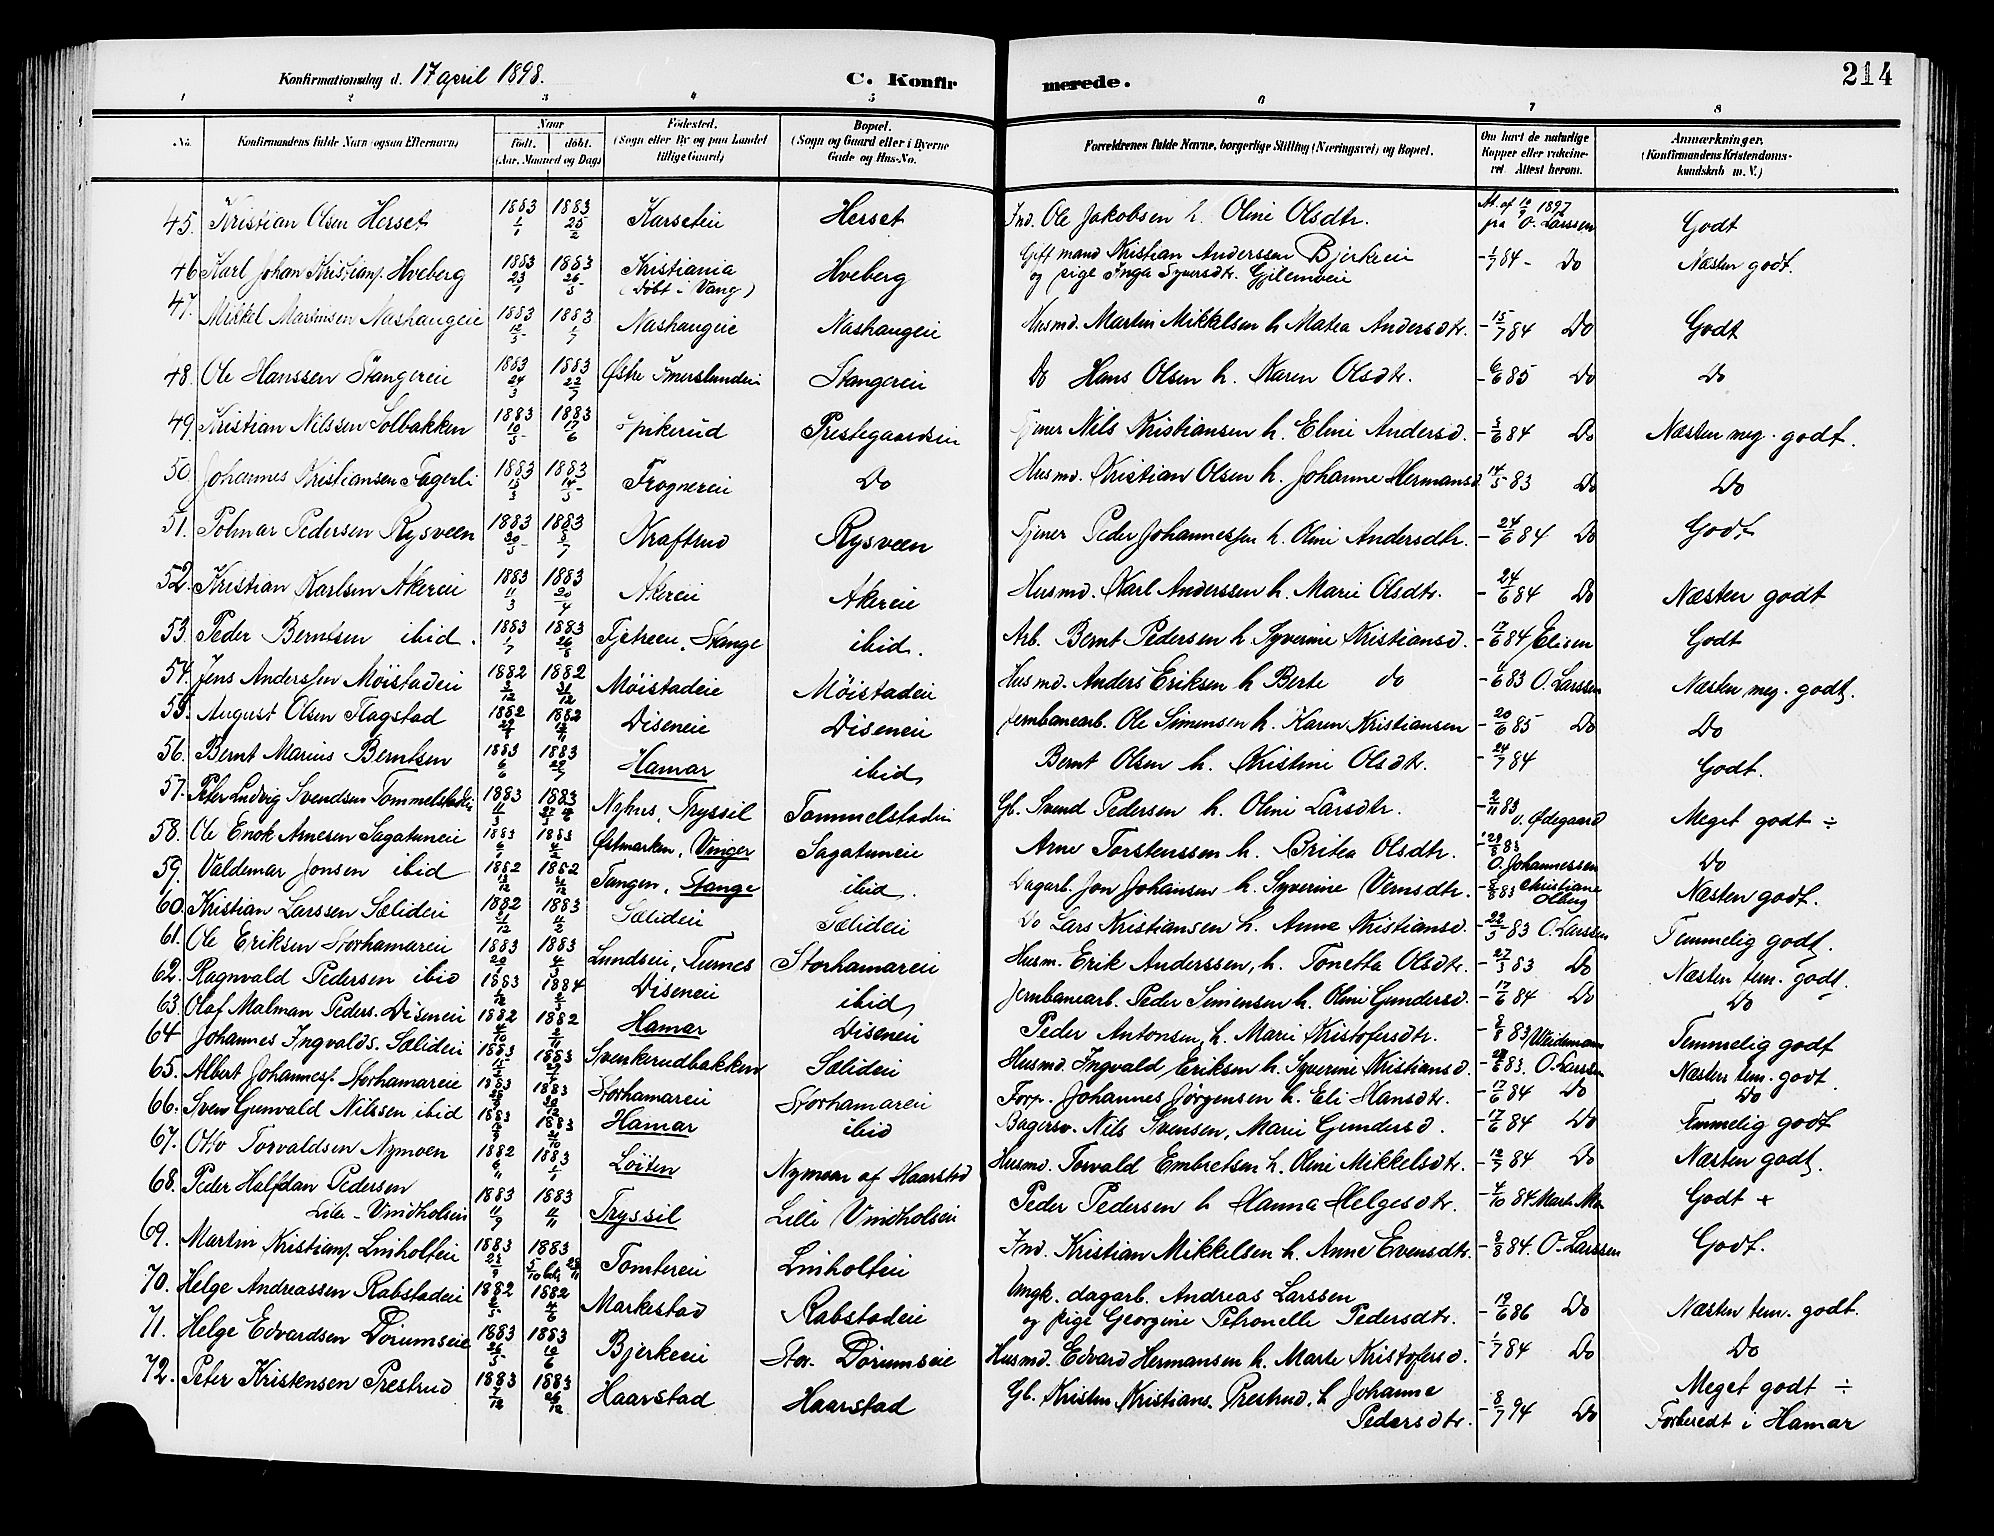 214
Konfirmationsdag d. 17 april 1898. C. Konfirmerede.
1 2 3 4 5 6 7 8
No. Konfirmandens fulde Navn (ogsaa Efternavn) Naar født. døbt. (Aar, Maaned og Dag) Fødested. (Sogn eller By og paa Landet tillige Gaard) Bopæl. (Sogn og Gaard eller i Byerne Gade og Hus-No. Forældrenes fulde Navne, borgerlige Stilling (Næringsvei) og Bopæl. Om havt de naturlige Kopper eller vakcineret. Attest herom. Anmærkninger. (Konfirmandens Kristendomskundskab m. V.)
45. Kristian Olsen Herset 1883 1/1 1883 25/2 Karseteie Herset Ind. Ole Jakobsen h. Oline Olsdtr. 1897 O. Larssen Godt
46 Karl Johan Kristians. Hveberg 1883 23/1 1883 26/3 Kristiania (døbt i Vang) Hveberg Gift mand Kristian Anderssen Bjerkeeie og pige Inga Syversdtr. - 1/7 84 - Do Næsten godt.
47. Mikkel Martinsen Nashaugeie 1883 1883 1/7 Nashaugeie Nashaugeie Husmd. Martin Mikkelsen h Matea Andersdtr. - 15/7 84 Do Godt
48. Ole Hanssen Stangereie 1883 24/3 1883 22/7 Østre Imerslundeie Stangereie Do Hans Olsen h. Karen Olsdtr. - 6/6 85 Do Do
49. Kristian Nilssen Solbakken 1883 1883 17/6 Spikerud Prestegaardseie Tjener Nils Kristiansen h. Eline Andersd. - 3/6 84 Do Næsten meg. godt.
50. Johannes Kristiansen Fagerli 1883 1883 14/5 Frognereie Do Husmd. Kristian Olsen h. Johanne Hermansd. 14/5 83 Do Do
51. Polmar Pedersen Rysveen 1883 1883 Kraftrud Rysveen Tjener Peder Johannessen h. Oline Andersdtr. - 24/6 84 Do Godt
52. Kristian Karlsen Akereie 1883 11/3 1883 20/4 Akereie Akereie Husmd. Karl Anderssen h. Marie Olsdtr. - 24/6 84 Do Næsten godt
53. Peder Berntsen ibid. 1883 1/7 1883 26/8 Tjetreeie, Stange ibid. Arb. Bernt Pedersen h Syverine Kristiansd. - 17/6 84 Elisen Godt
54. Jens Anderssen Møistadeie 1882 3/12 1882 31/12 Møistadeie Møistadeie Husmd. Anders Eriksen h Berte do - 4/6 83 O. Larssen Næsten meg. godt.
55. August Olsen Flagstad 1882 1882 Diseneie Diseneie Jernbanearb. Ole Simensen h. Karen Kristiansen - 20/6 85 Do Do
56. Bernt Marius Berntsen 1883 6/6 1883 Hamar ibid Bernt Olsen h. Kristine Olsdtr. - 24/7 84 Godt.
57. Peter Ludvig Svendsen Tommelstadeie 1883 11/3 1883 Nyhus, Trysil Tommelstadeie Gb. Svend Pedersen h. Oline Larsdtr. - 2/11 83 v. Ødegaard Meget godt ÷
58. Ole Enok Arnesen Sagatuneie 1883 6/1 1883 4/2 Østmarken, Vinger Sagatuneie Arne Torstenssen h. Britea Olsdtr. 83 O. Johannessen Do
59. Valdemar Jonsen ibid 1882 1882 Tangen, Stange ibid. Dagarb. Jon Johansen h. Syverine Vernsdtr. 83 Christiane Olberg Næsten godt.
60. Kristian Larssen Sælideie 1882 1883 Sælideie Sælideie Do Lars Kristiansen h. Anna Kristiansd. - 22/5 83 O. Larssen Temmelig godt.
61. Ole Eriksen Storhamareie 1883 1883 4/3 Lundseie, Furnes Storhamareie Husm. Erik Anderssen, h. Tonetta Olsdtr. - 27/3 83 Do Næsten tem. godt.
62. Ragnvald Pedersen ibid 1883 1884 Diseneie ibid Jernbanearb. Peder Simensen h. Oline Gundersd. - 17/6 84 Do Do
63. Olaf Malman Peders. Diseneie 1882 1882 Hamar Diseneie Peder Antonsen h. Marie Kristofersdtr. - 8/8 83 Weidemann Temmelig godt
64 Johannes Ingvalds. Sælideie 1883 1883 Svenkerudbakken Sælideie Husmd. Ingvald Eriksen h. Syverine Kristiansd. 83. O. Larssen Næsten tem. godt.
65. Albert Johannes. Storhamareie 1883 1883 Storhamareie Storhamareie Forp. Johannes Jørgensen h. Eli Hansdtr. - 17/6 84 Do Do
66. Sven Gunvald Nilssen ibid 1883 1883 Hamar ibid Bagersv. Nils Svensen, Marie Gundersd. - 17/6 84 Do Temmelig godt
67. Otto Torvaldsen Nymoen 1882 6/11 1883 1/1 Løiten Nymoen af Haarstad Husmd. Torvald Embretsen h. Oline Mikkelsdtr. - 12/7 84 Do Næsten godt.
68. Peder Halfdan Pedersen
Lille-Vindholseie 1883 11/9 1883 11/11 Tryssil Lille Vindholseie Peder Pedersen h Hanna Helgesdtr. - 4/10 84 Marte Moe Godt +
69. Martin Kristians. Linholteie 1883 1883 Tomtereie Linholteie Ind. Kristian Mikkelsen h. Anne Evensdtr. - 8/8 84. O. Larssen Godt.
70. Helge Andreassen Rabstadeie 1882 1882 4/6 Markestad Rabstadeie Ungk. dagarb. Andreas Larssen
og pige Georgine Petronelle Pedersdtr. - 19/6 86 Do Næsten tem. godt.
71. Helge Edvardsen Dørumseie 1883 26/5 1883 Bjerkeeie Stor-Dørumseie Husmd. Edvard Hermansen h. Marte Kristofersd. - 1/7 84 Do Do
72. Peter Kristensen Prestrud 1883 7/12 1883 26/12 Haarstad Haarstad Gb. Kristen Kristians. Prestrud, h Johanne
Pedersdtr. - 8/7 94 Do Meget godt ÷
Forberedt i Hamar